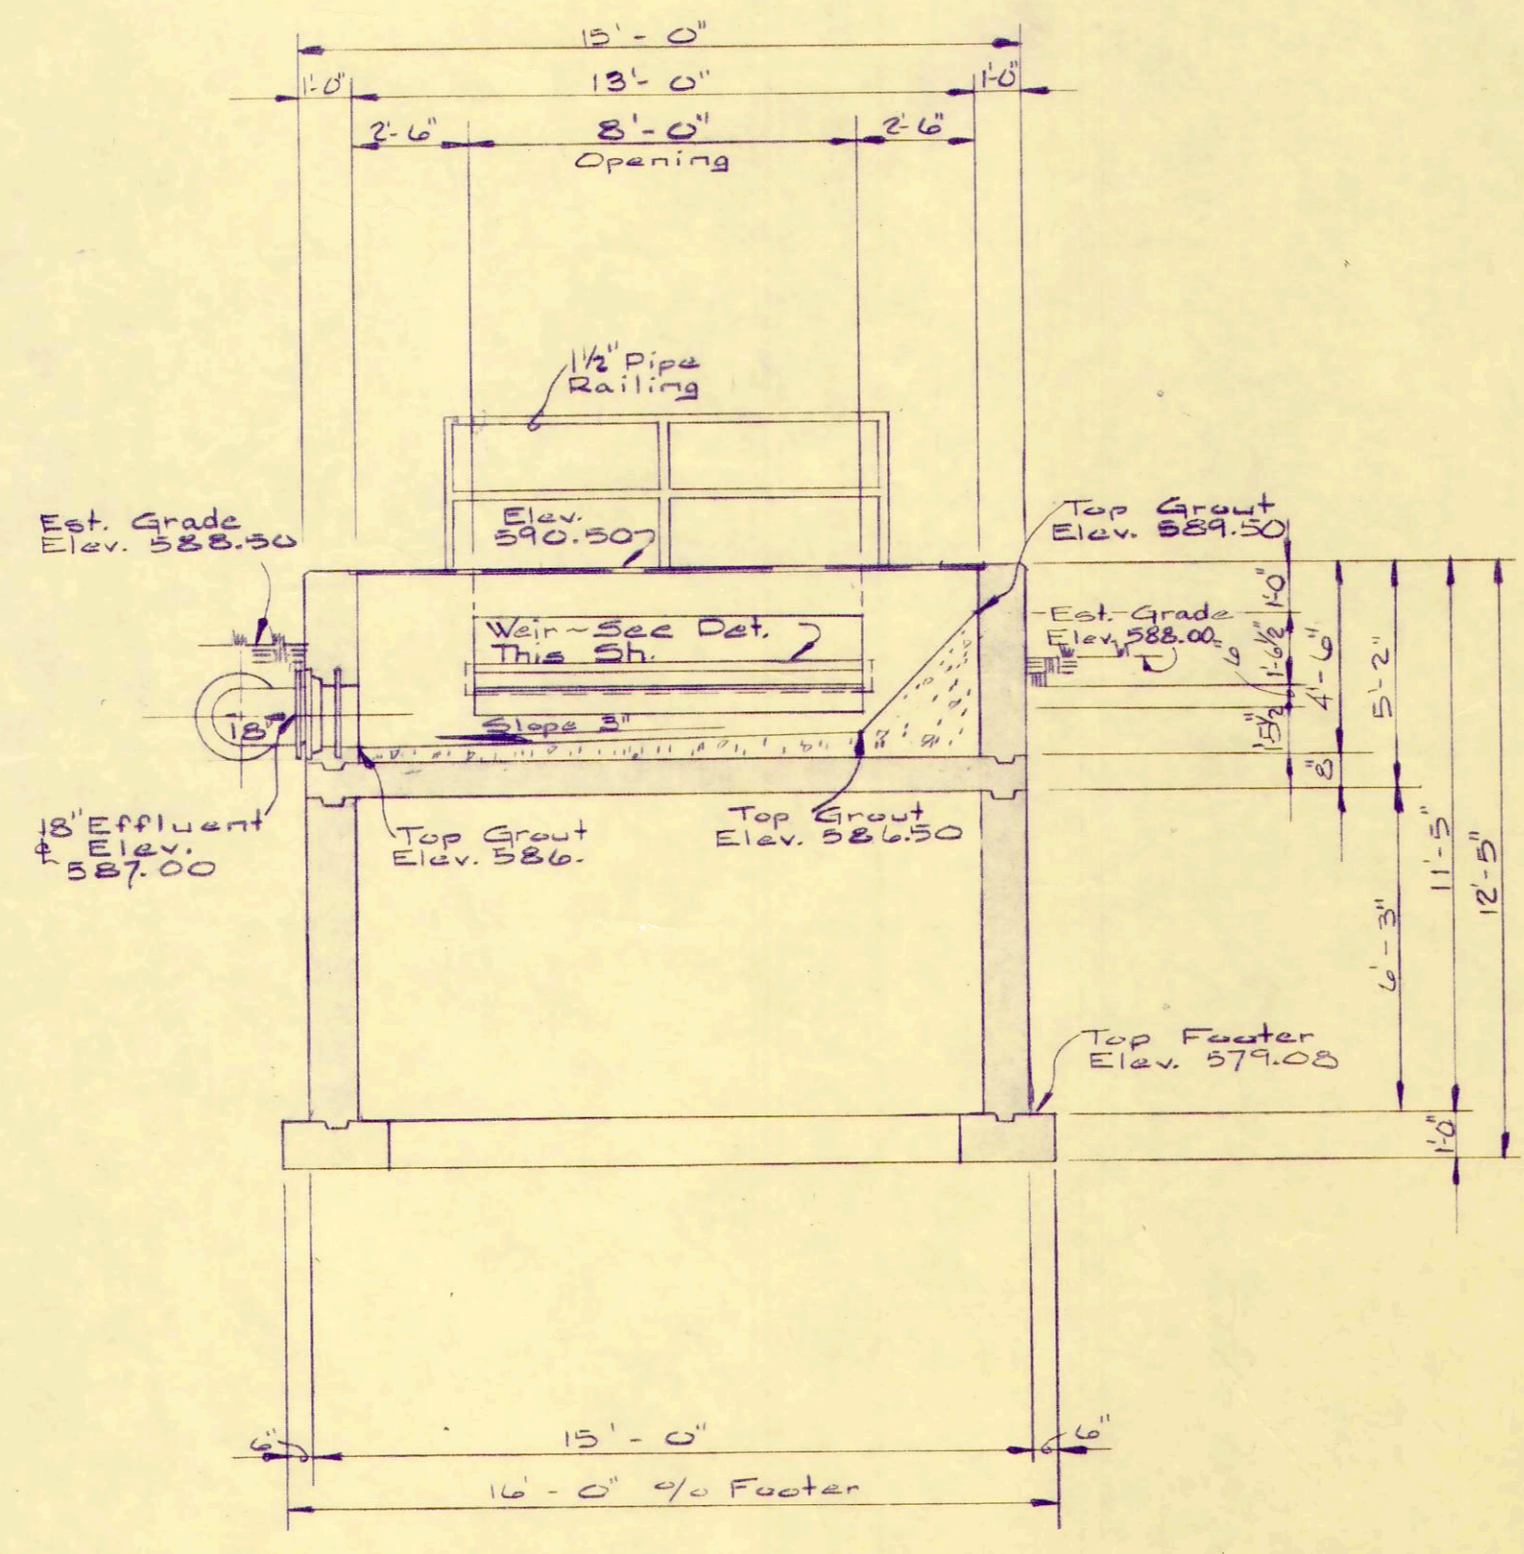 15'-0"
1'-0"
13'-0"
1'-0"
2'-6"
8'-0"
2'-6"
Opening
1½" Pipe
Railing
Est. Grade
Elev. 588.50
Elev.
590.50
Top Grout
Elev. 589.50
Est. Grade
Elev. 588.00
Weir~See Det.
This Sh.
Slope 3"
18"
18" Effluent
℄ Elev.
587.00
Top Grout
Elev. 586.
Top Grout
Elev. 586.50
1'-0"
1'-6½"
6"
1'5½"
4'-6"
8"
5'-2"
6'-3"
11'-5"
12'-5"
1'-0"
Top Footer
Elev. 579.08
6"
15'-0"
6"
16'-0" o/o Footer